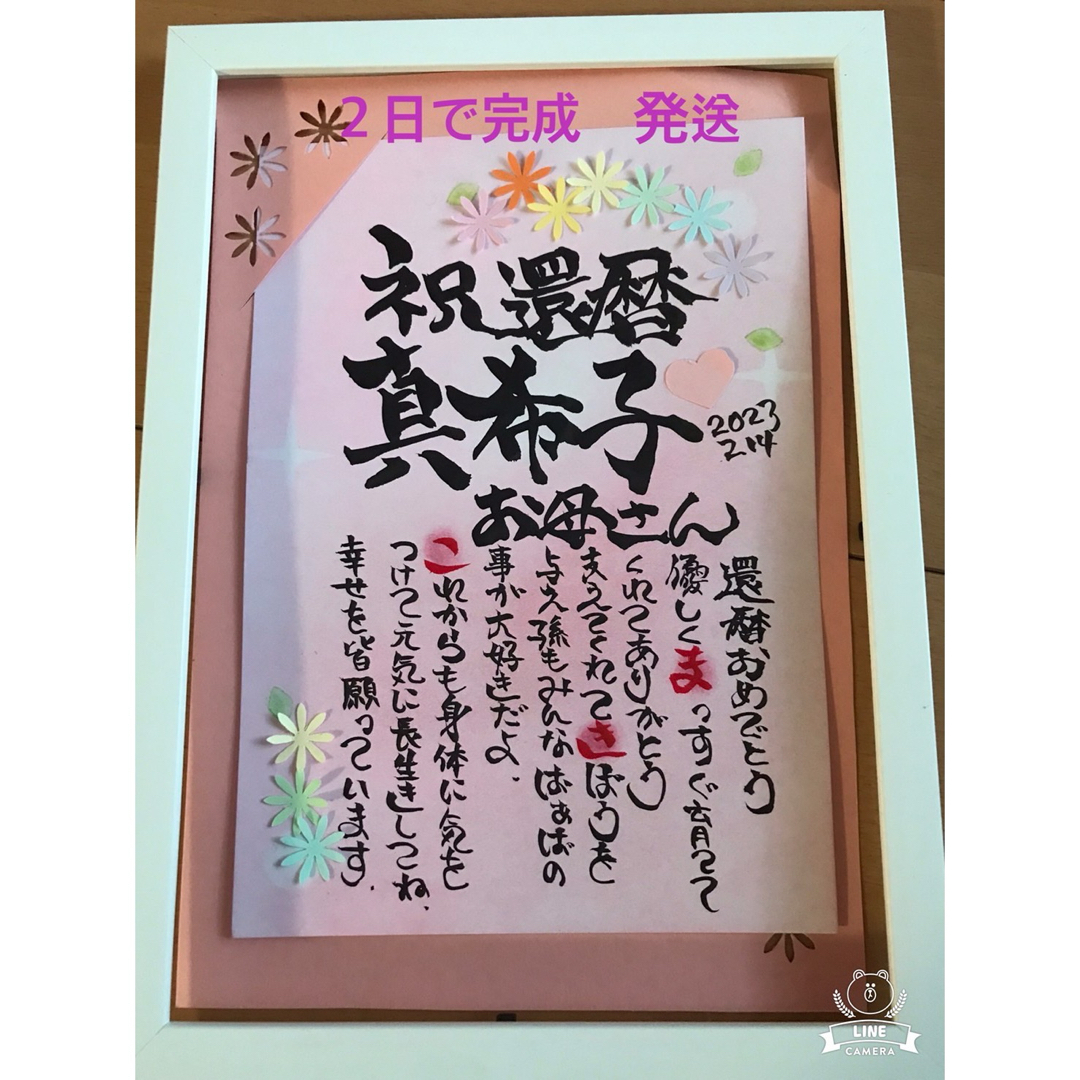 ２日で完成　発送
祝還暦
真希子
2023
2.14
お母さん
還暦おめでとう
優しくまっすぐ育てて
くれてありがとう
支えてくれてきぼうを
与え孫もみんなばぁばの
事が大好きだよ、
これからも身体に気を
つけて元気に長生きしてね、
幸せを皆願っています。
LINE
CAMERA